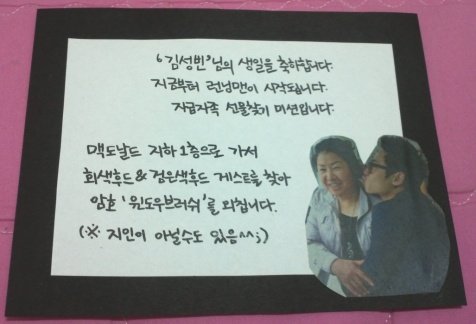 '김성빈'님의 생일을 축하합니다.
지금부터 런닝맨이 시작됩니다.
자급자족 선물찾기 미션입니다.
맥도날드 지하 1층으로 가서
회색후드 & 검은색후드 게스트를 찾아
암호 '윈도우브러쉬'를 외칩니다.
(※ 지인이 아닐수도 있음^^;)